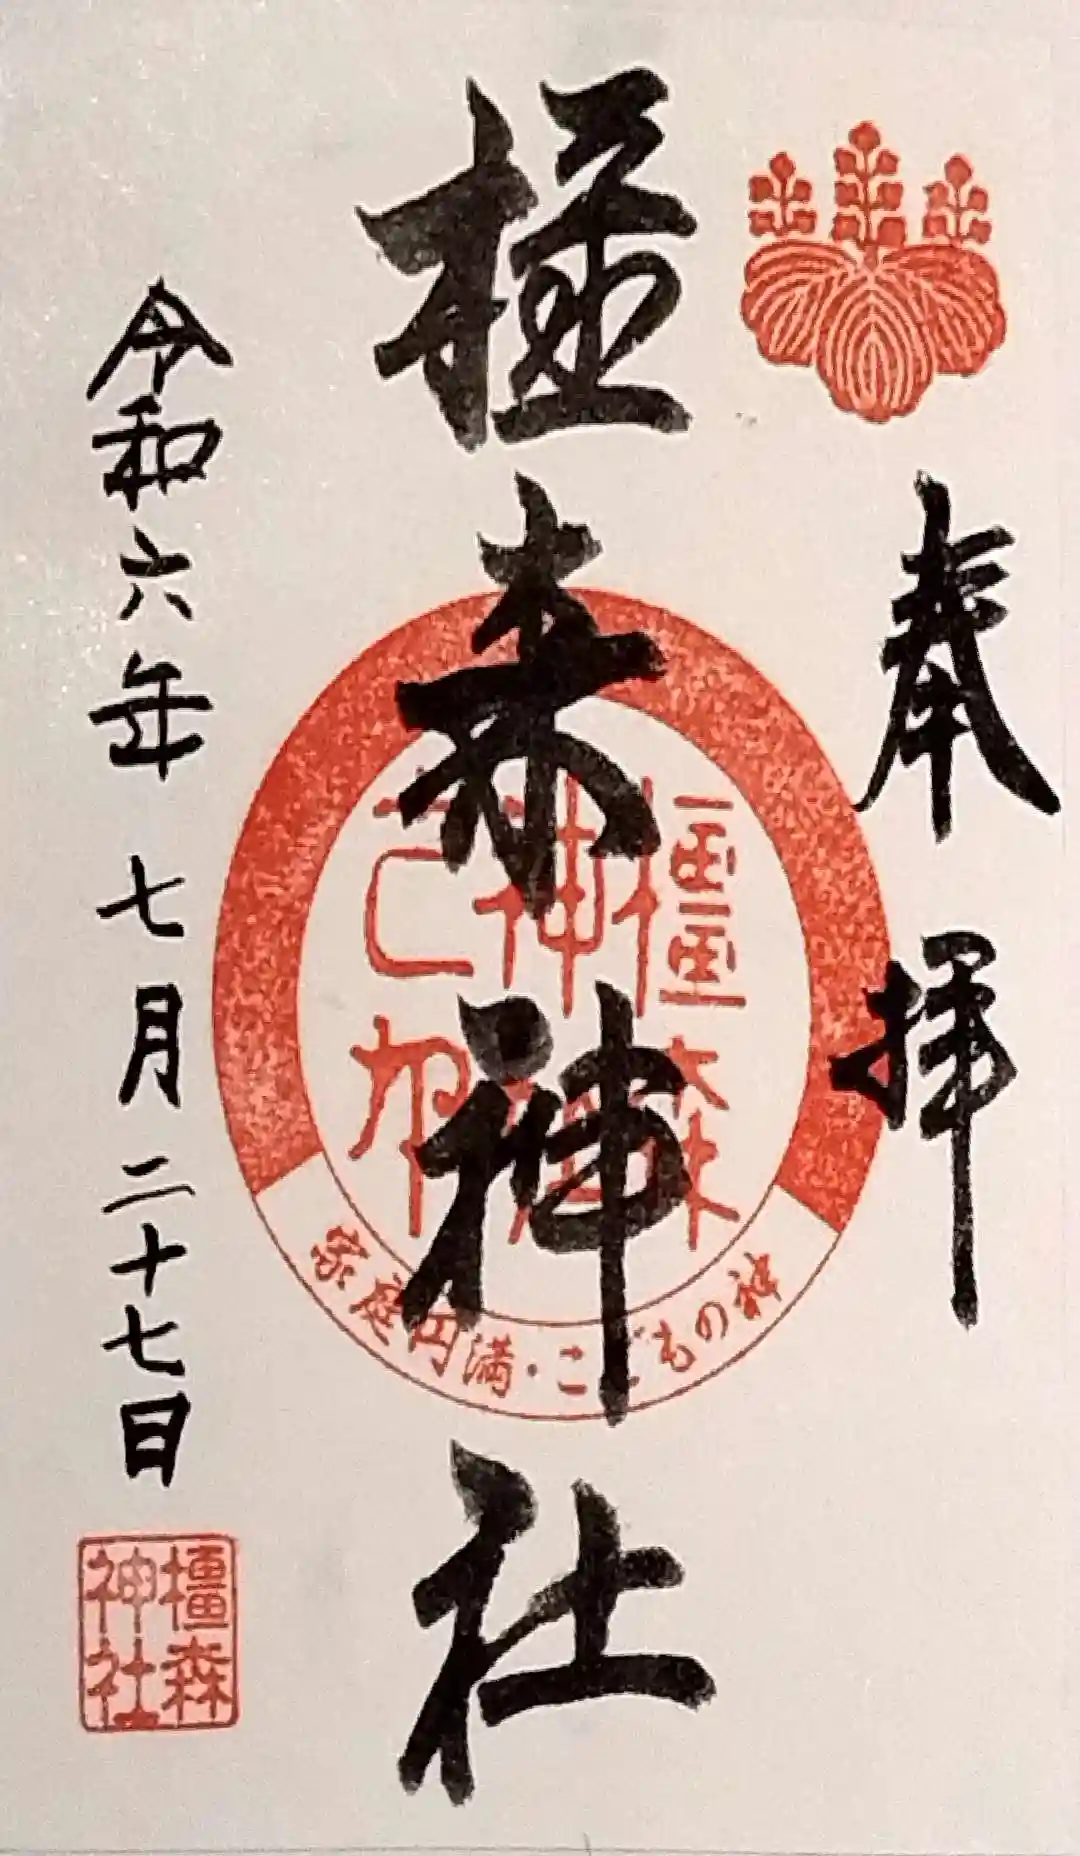 奉拝
橿森神社
橿森
神社
家庭円満・こどもの神
令和六年七月二十七日
橿森
神社